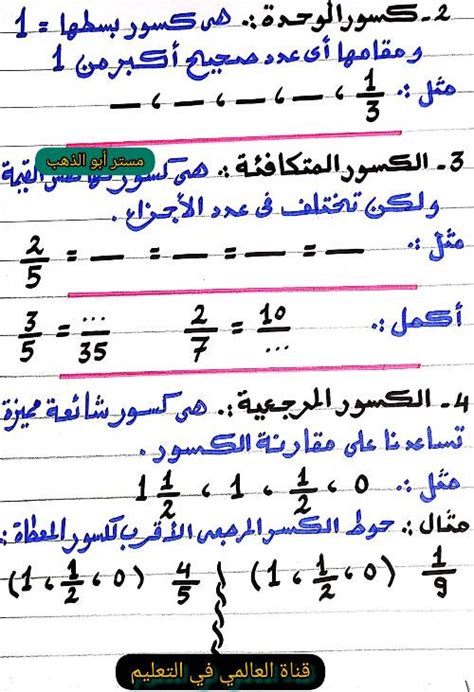 2- كسور الوحدة :. هى كسور بسطها = 1
ومقامها أى عدد صحيح أكبر من 1
مثل :. 1/3 ، __ ، __ ، __
مستر أبو الذهب
3- الكسور المتكافئة :. هى كسور لها نفس القيمة
ولكن تختلف فى عدد الأجزاء .
مثل :.
2/5 = __ = __ = __ = __
أكمل :. 2/7 = 10/... 3/5 = .../35
4- الكسور المرجعية :. هى كسور شائعة مميزة
تساعدنا على مقارنة الكسور .
مثل :. 0 ، 1/2 ، 1 ، 1 1/2
مثال :. حوط الكسر المرجعى الأقرب للكسور المعطاة :.
1/9 (0 ، 1/2 ، 1) 4/5 (0 ، 1/2 ، 1)
قناة العالمي في التعليم